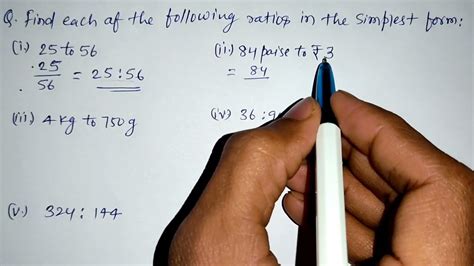 Q. Find each of the following ratios in the simplest form:
(i) 25 to 56
. 25/56 = 25:56
(ii) 84 paise to ₹3
= 84
(iii) 4 kg to 750g
(iv) 36:9
(v) 324:144